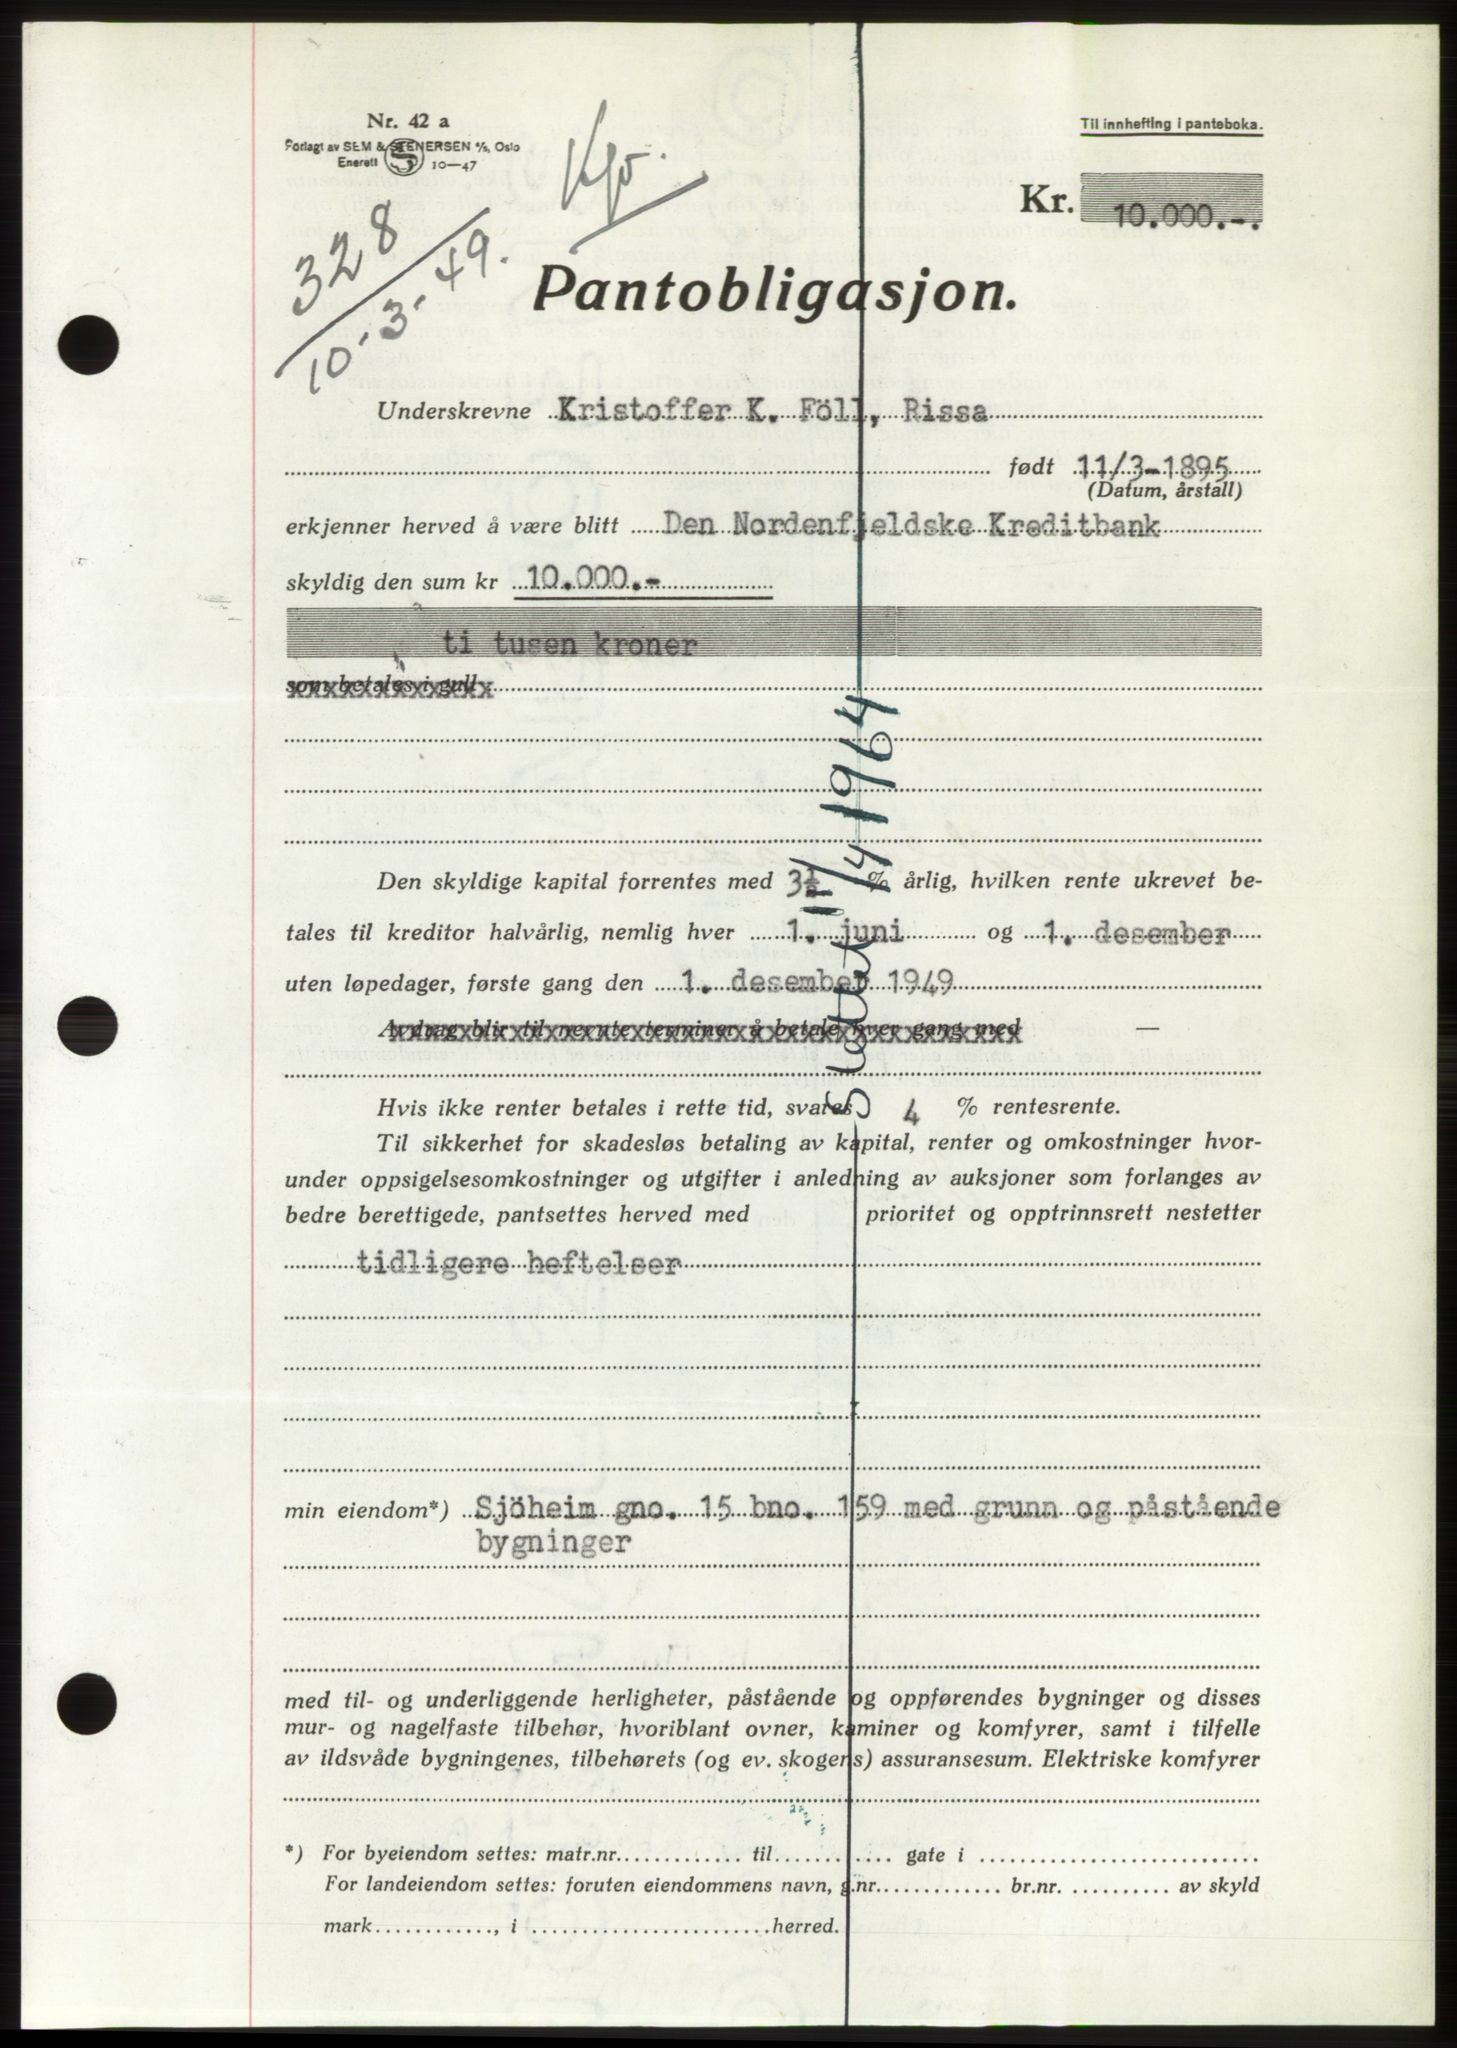 Nr. 42 a
Forlagt av SEM & STENERSEN A/S, Oslo
Enerett 10—47
Til innhefting i panteboka.
Kr. 10.000.-.
328
10-3-49.
Pantobligasjon.
Underskrevne Kristoffer K. Föll, Rissa
født 11/3-1895
(Datum, årstall)
erkjenner herved å være blitt Den Nordenfjeldske Kreditbank
skyldig den sum kr 10.000.-
ti tusen kroner
som betales i gull
Den skyldige kapital forrentes med 3½ % årlig, hvilken rente ukrevet be-
tales til kreditor halvårlig, nemlig hver 1. juni og 1. desember
uten løpedager, første gang den 1. desember 1949
Avdrag blir til nevnte terminer å betale hver gang med —
Hvis ikke renter betales i rette tid, svares 4 % rentesrente.
Til sikkerhet for skadesløs betaling av kapital, renter og omkostninger hvor-
under oppsigelsesomkostninger og utgifter i anledning av auksjoner som forlanges av
bedre berettigede, pantsettes herved med prioritet og opptrinnsrett nestetter
tidligere heftelser
min eiendom*) Sjöheim gno. 15 bno. 159 med grunn og påstående
bygninger
med til- og underliggende herligheter, påstående og oppførendes bygninger og disses
mur- og nagelfaste tilbehør, hvoriblant ovner, kaminer og komfyrer, samt i tilfelle
av ildsvåde bygningenes, tilbehørets (og ev. skogens) assuransesum. Elektriske komfyrer
*) For byeiendom settes: matr.nr. til gate i
For landeiendom settes: foruten eiendommens navn, g.nr. br.nr. av skyld
mark , i herred.
Slettet 17/4 1964